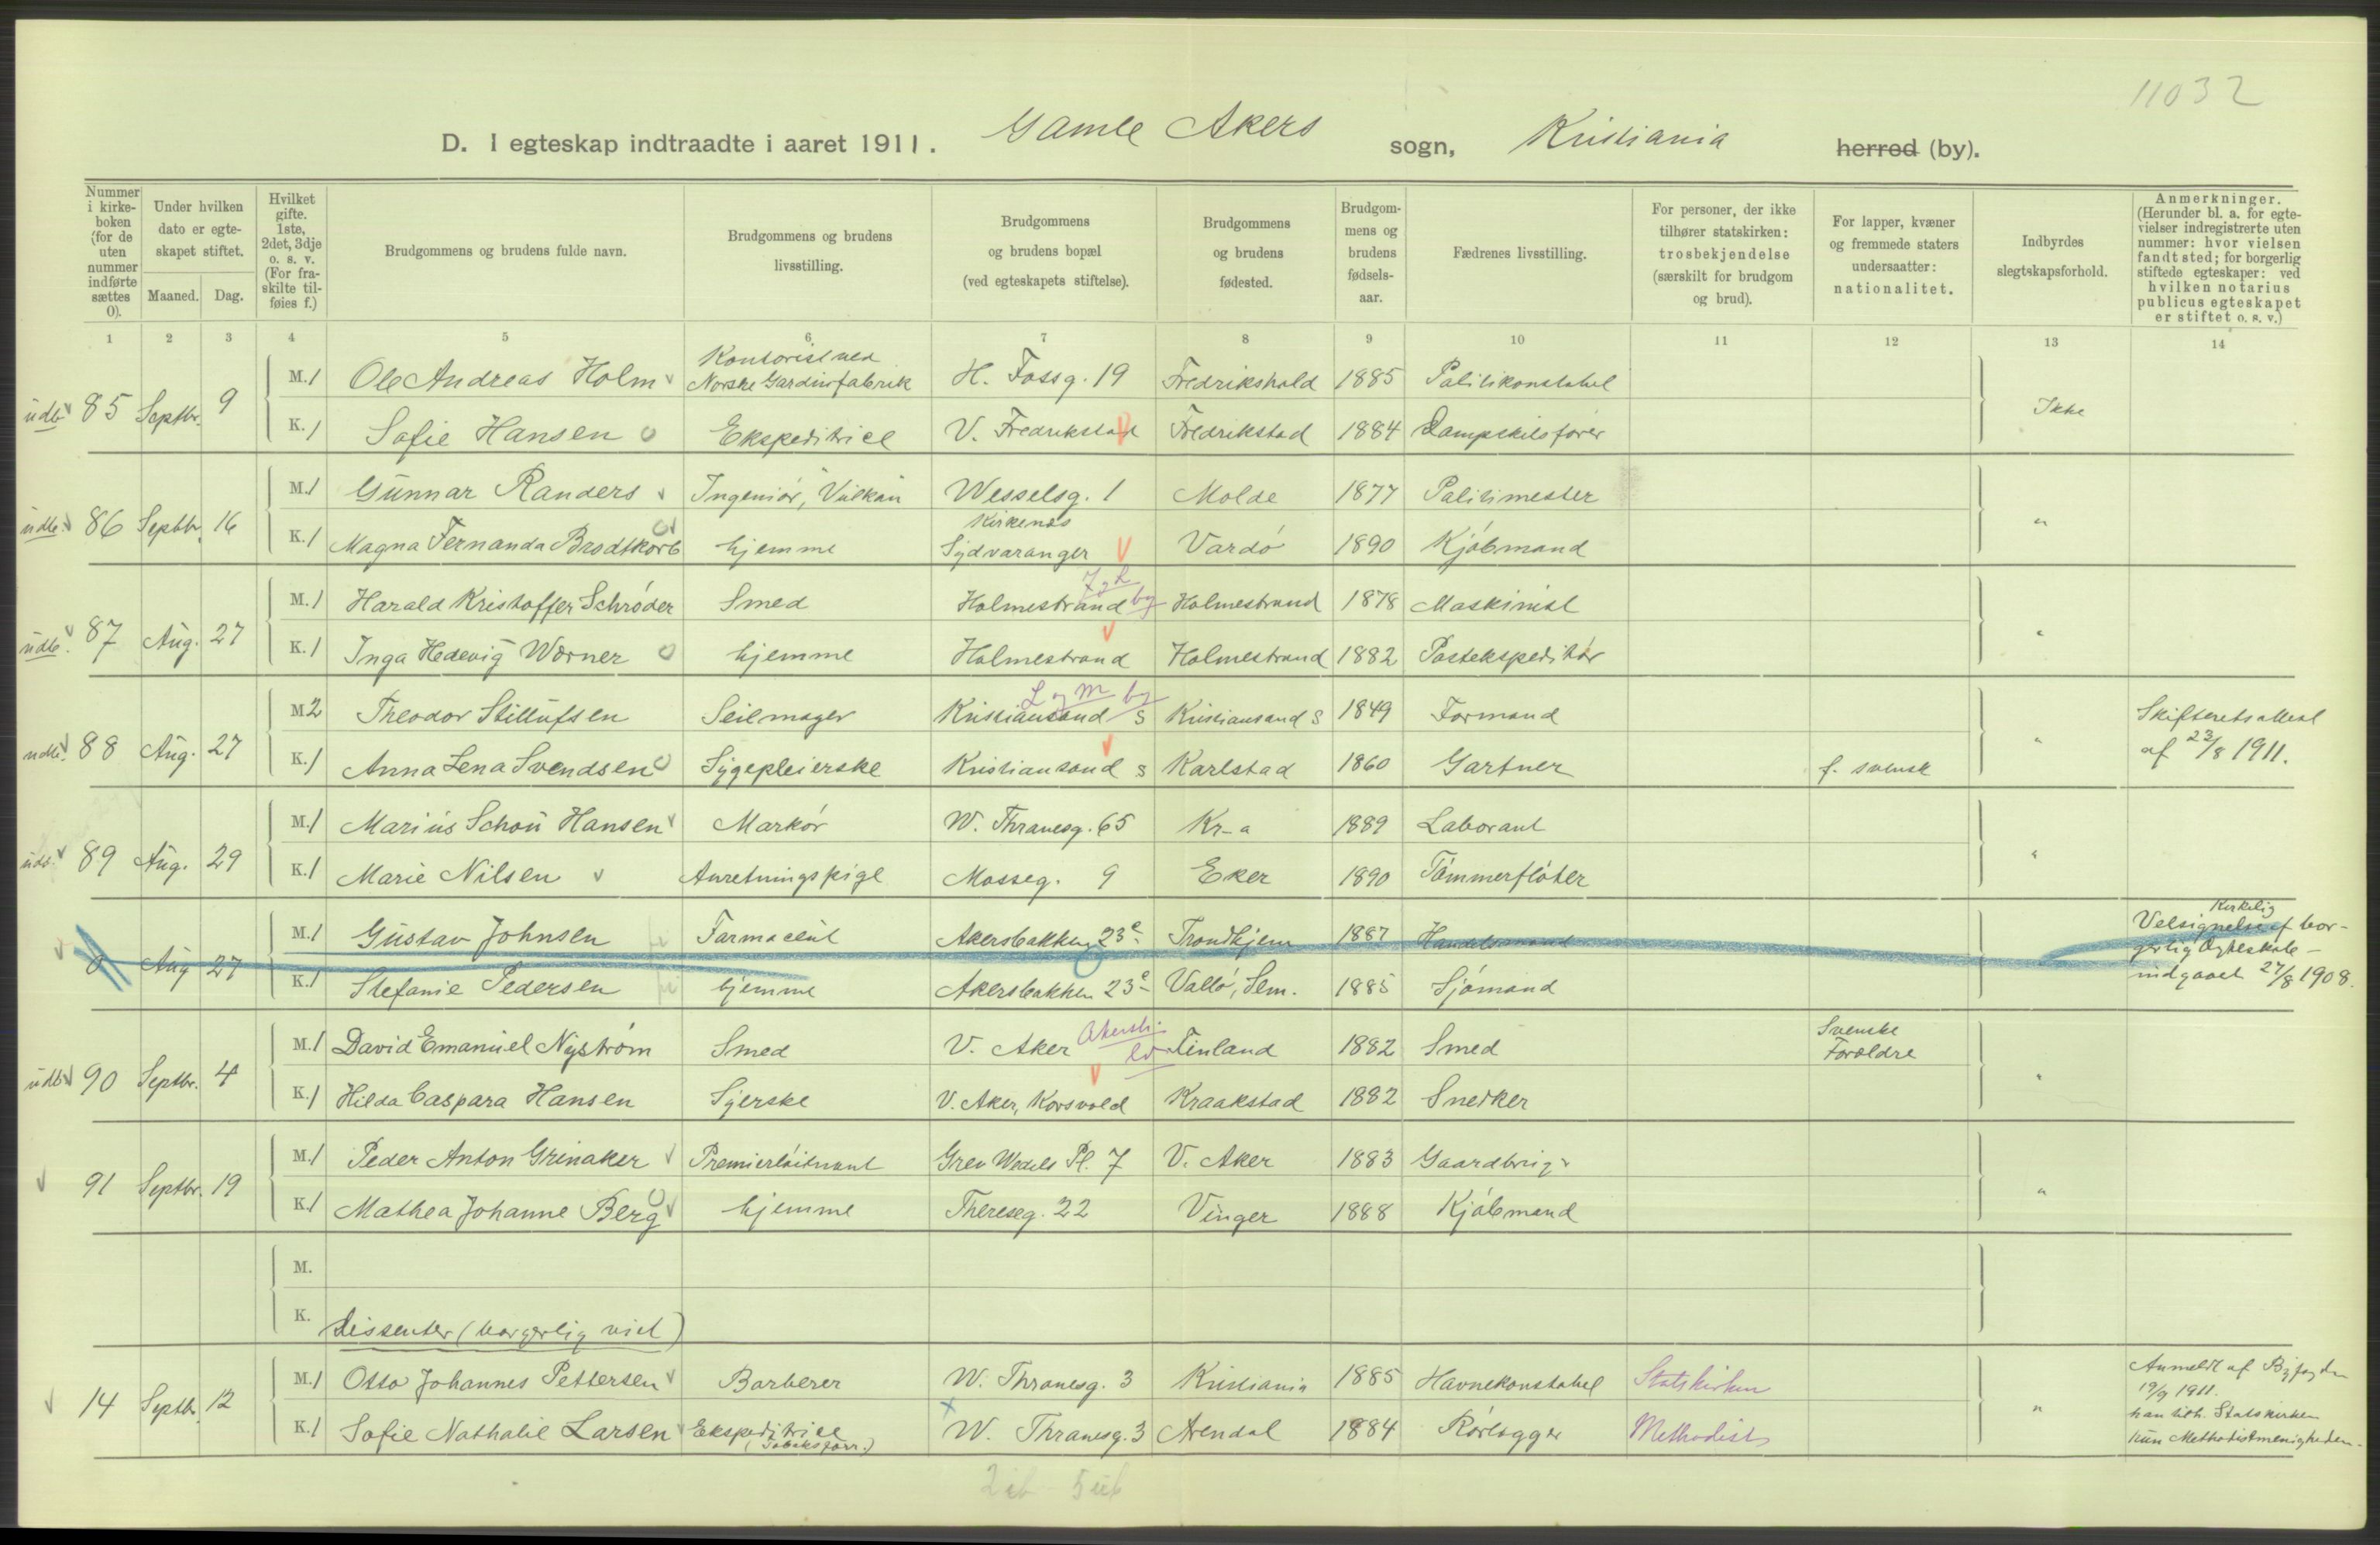 11032
D. I egteskap indtraadte i aaret 1911. Gamle Akers sogn, Kristiania herred (by).
Nummer i kirkeboken (for de uten nummer indførte sættes 0).
Under hvilken dato er egteskapet stiftet.
Maaned. Dag.
Hvilket gifte. 1ste, 2det, 3dje o. s. v. (For fraskilte tilføies f.)
Brudgommens og brudens fulde navn.
Brudgommens og brudens livsstilling.
Brudgommens og brudens bopæl (ved egteskapets stiftelse).
Brudgommens og brudens fødested.
Brudgommens og brudens fødselsaar.
Fædrenes livsstilling.
For personer, der ikke tilhører statskirken: trosbekjendelse (særskilt for brudgom og brud).
For lapper, kvæner og fremmede staters undersaatter: nationalitet.
Indbyrdes slegtskapsforhold.
Anmerkninger. (Herunder bl. a. for egtevielser indregistrerte uten nummer: hvor vielsen fandt sted; for borgerlig stiftede egteskaper: ved hvilken notarius publicus egteskapet er stiftet o. s. v.)
1 2 3 4 5 6 7 8 9 10 11 12 13 14
udb 85 Septbr. 9 M. 1 Ole Andreas Holm Kontorist ved Norske Gardinfabrik H. Fossg. 19 Fredrikshald 1885 Politikonstabel
K. 1 Sofie Hansen Ekspeditrice V. Fredrikstad Fredrikstad 1884 Dampskibsfører Ikke
udb. 86 Septbr. 16 M. 1 Gunnar Randers Ingeniør, Vulkan Wesselsg. 1 Molde 1877 Politimester
K. 1 Magna Fernanda Brodtkorb hjemme Kirkenes Sydvaranger Vardø 1890 Kjøbmand "
udb. 87 Aug. 27 M. 1 Harald Kristoffer Schrøder Smed Holmestrand by Holmestrand 1878 Maskinist
K. 1 Inga Hedevig Worner hjemme Holmestrand Holmestrand 1882 Postekspeditør "
udb. 88 Aug. 27 M 2 Theodor Stillufsen Seilmager Kristiansand S Kristiansand S 1849 Formand Skifteretsattest
K. 1 Anna Lena Svendsen Sygepleierske Kristiansand S Karlstad 1860 Gartner f. svensk " af 23/8 1911.
udb. 89 Aug. 29 M. 1 Marius Schou Hansen Markør W. Thranesg. 65 Kr-a 1889 Laborant
K. 1 Marie Nilsen Anretningspige Mosseg. 9 Eker 1890 Tømmerfløter "
0 Aug 27 M. 1 Gustav Johnsen Farmaceut Akersbakken 23c Trondhjem 1887 Handelsmand Kirkelig Velsignelse af borgerlig Ægteskab
K. 1 Stefanie Pedersen hjemme Akersbakken 23c Vallø, Sem. 1885 Sjømand indgaaet 27/8 1908.
udb 90 Septbr. 4 M. 1 David Emanuel Nystrøm Smed V. Aker Akersh. Finland 1882 Smed Svenske Forældre
K. 1 Hilda Caspara Hansen Syerske V. Aker, Korsvold Kraakstad 1882 Snedker "
91 Septbr. 19 M. 1 Peder Anton Grinaker Premierløitnant Grev Wedels Pl. 7 V. Aker 1883 Gaardbruger
K. 1 Mathea Johanne Berg hjemme Thereseg. 22 Vinger 1888 Kjøbmand "
M.
K. Dissenter (borgerlig viet)
14 Septbr. 12 M. 1 Otto Johannes Pettersen Barberer W. Thranesg. 3 Kristiania 1885 Havnekonstabel Statskirken Anmeldt af Byfogden 19/9 1911.
K. 1 Sofie Nathalie Larsen Ekspeditrice (Tobaksforr.) W. Thranesg. 3 Arendal 1884 Rørlegger Methodist " han tilh. Statskirken hun Methodistmenigheden.